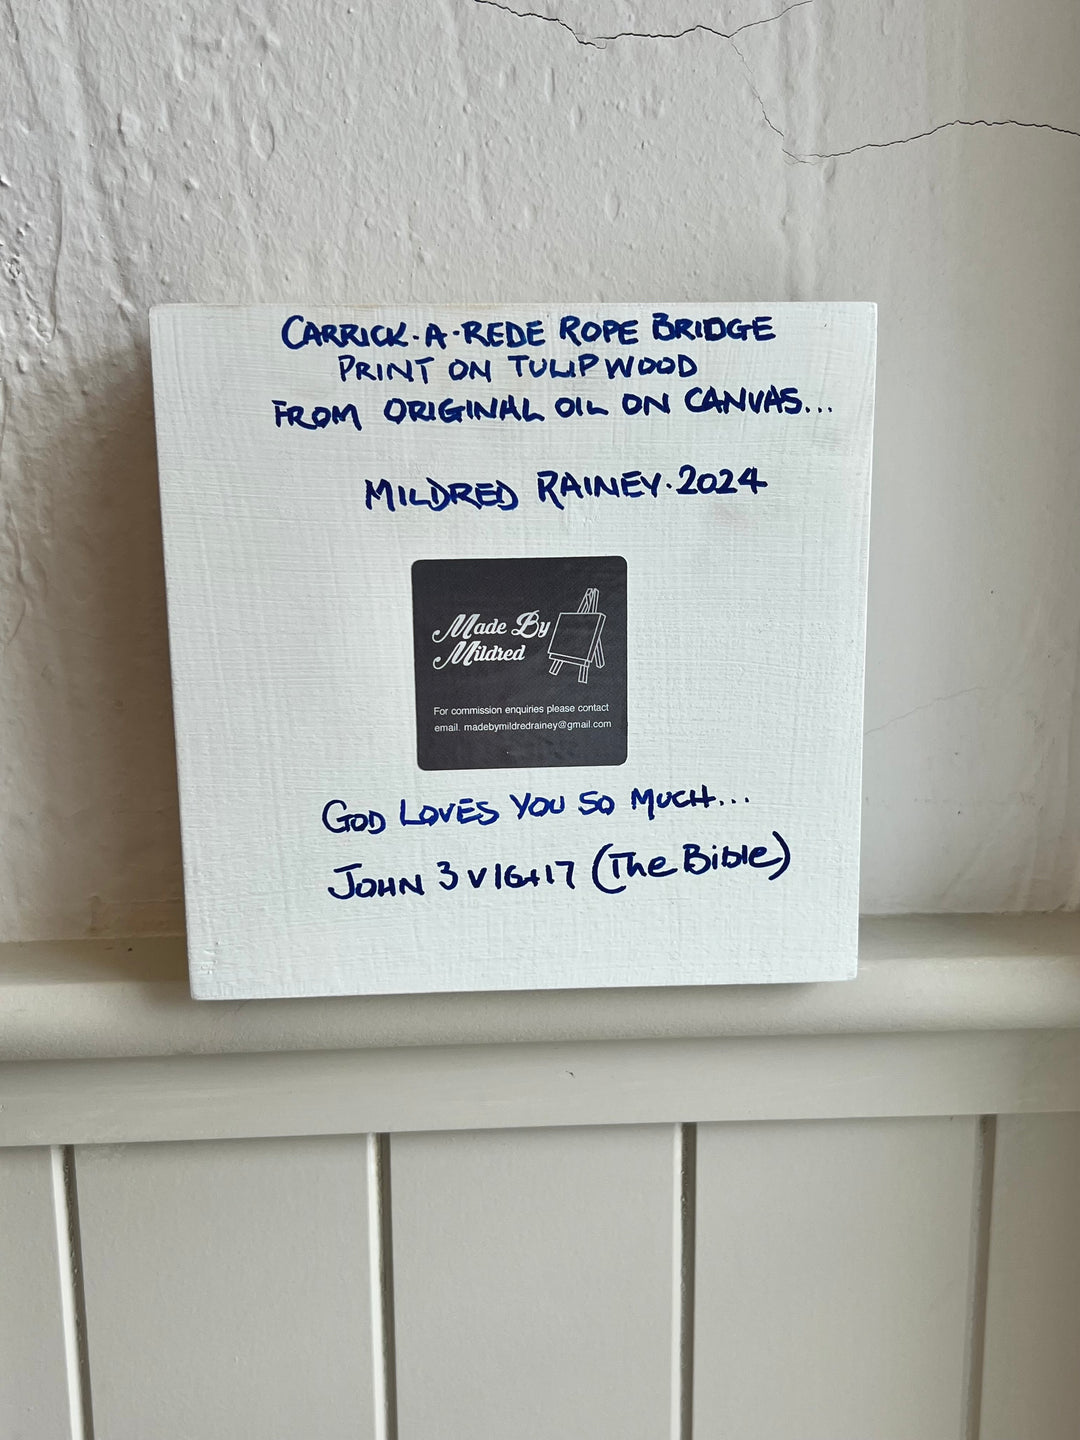 CARRICK-A-REDE ROPE BRIDGE
PRINT ON TULIPWOOD
FROM ORIGINAL OIL ON CANVAS...
MILDRED RAINEY. 2024
Made By
Mildred
For commission enquiries please contact
email. madebymildredrainey@gmail.com
GOD LOVES YOU SO MUCH...
JOHN 3 v 16+17 (The Bible)